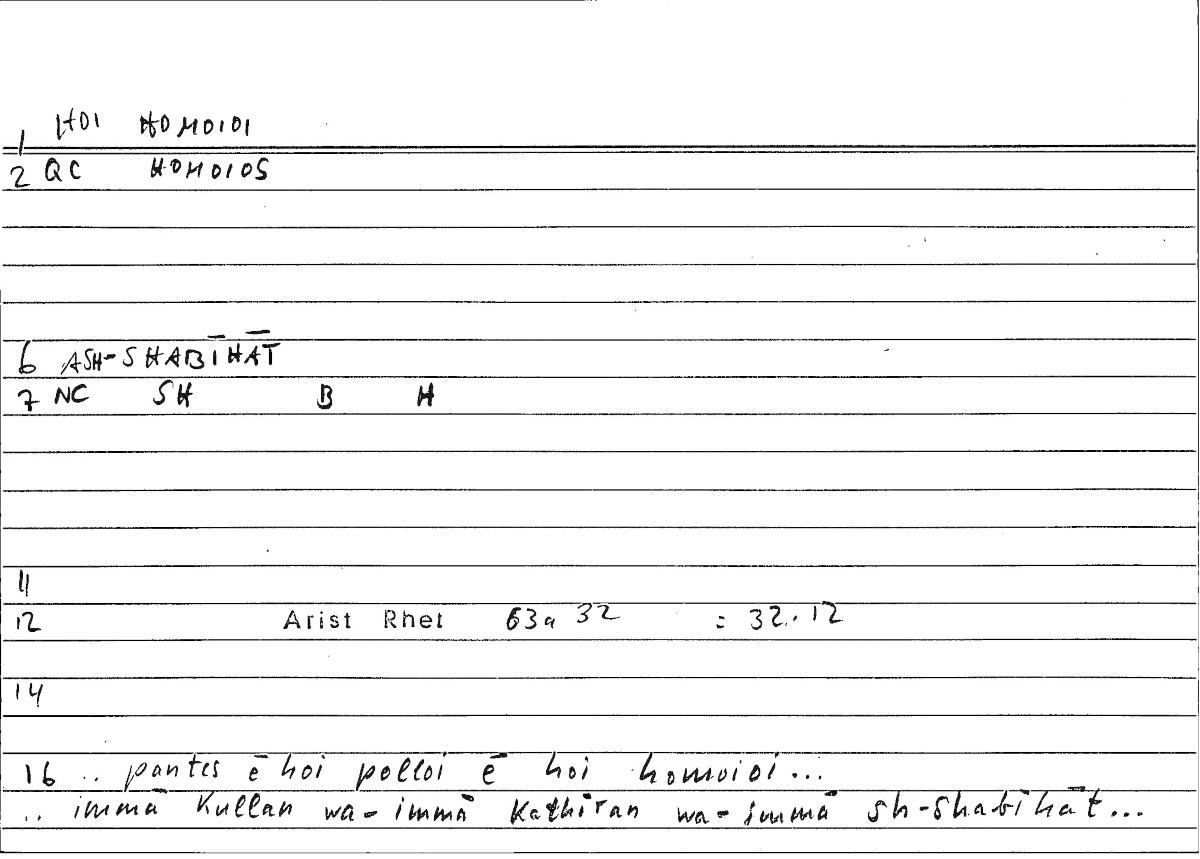 1 HOI HOMOIOI
2 QC HOMOIOS
6 ASH-SHABĪHĀT
7 NC SH B H
11
12 Arist Rhet 63a 32 = 32.12
14
16 .. pantes ē hoi polloi ē hoi homoioi...
.. immā kullan wa-immā kathīran wa-immā sh-shabīhāt...